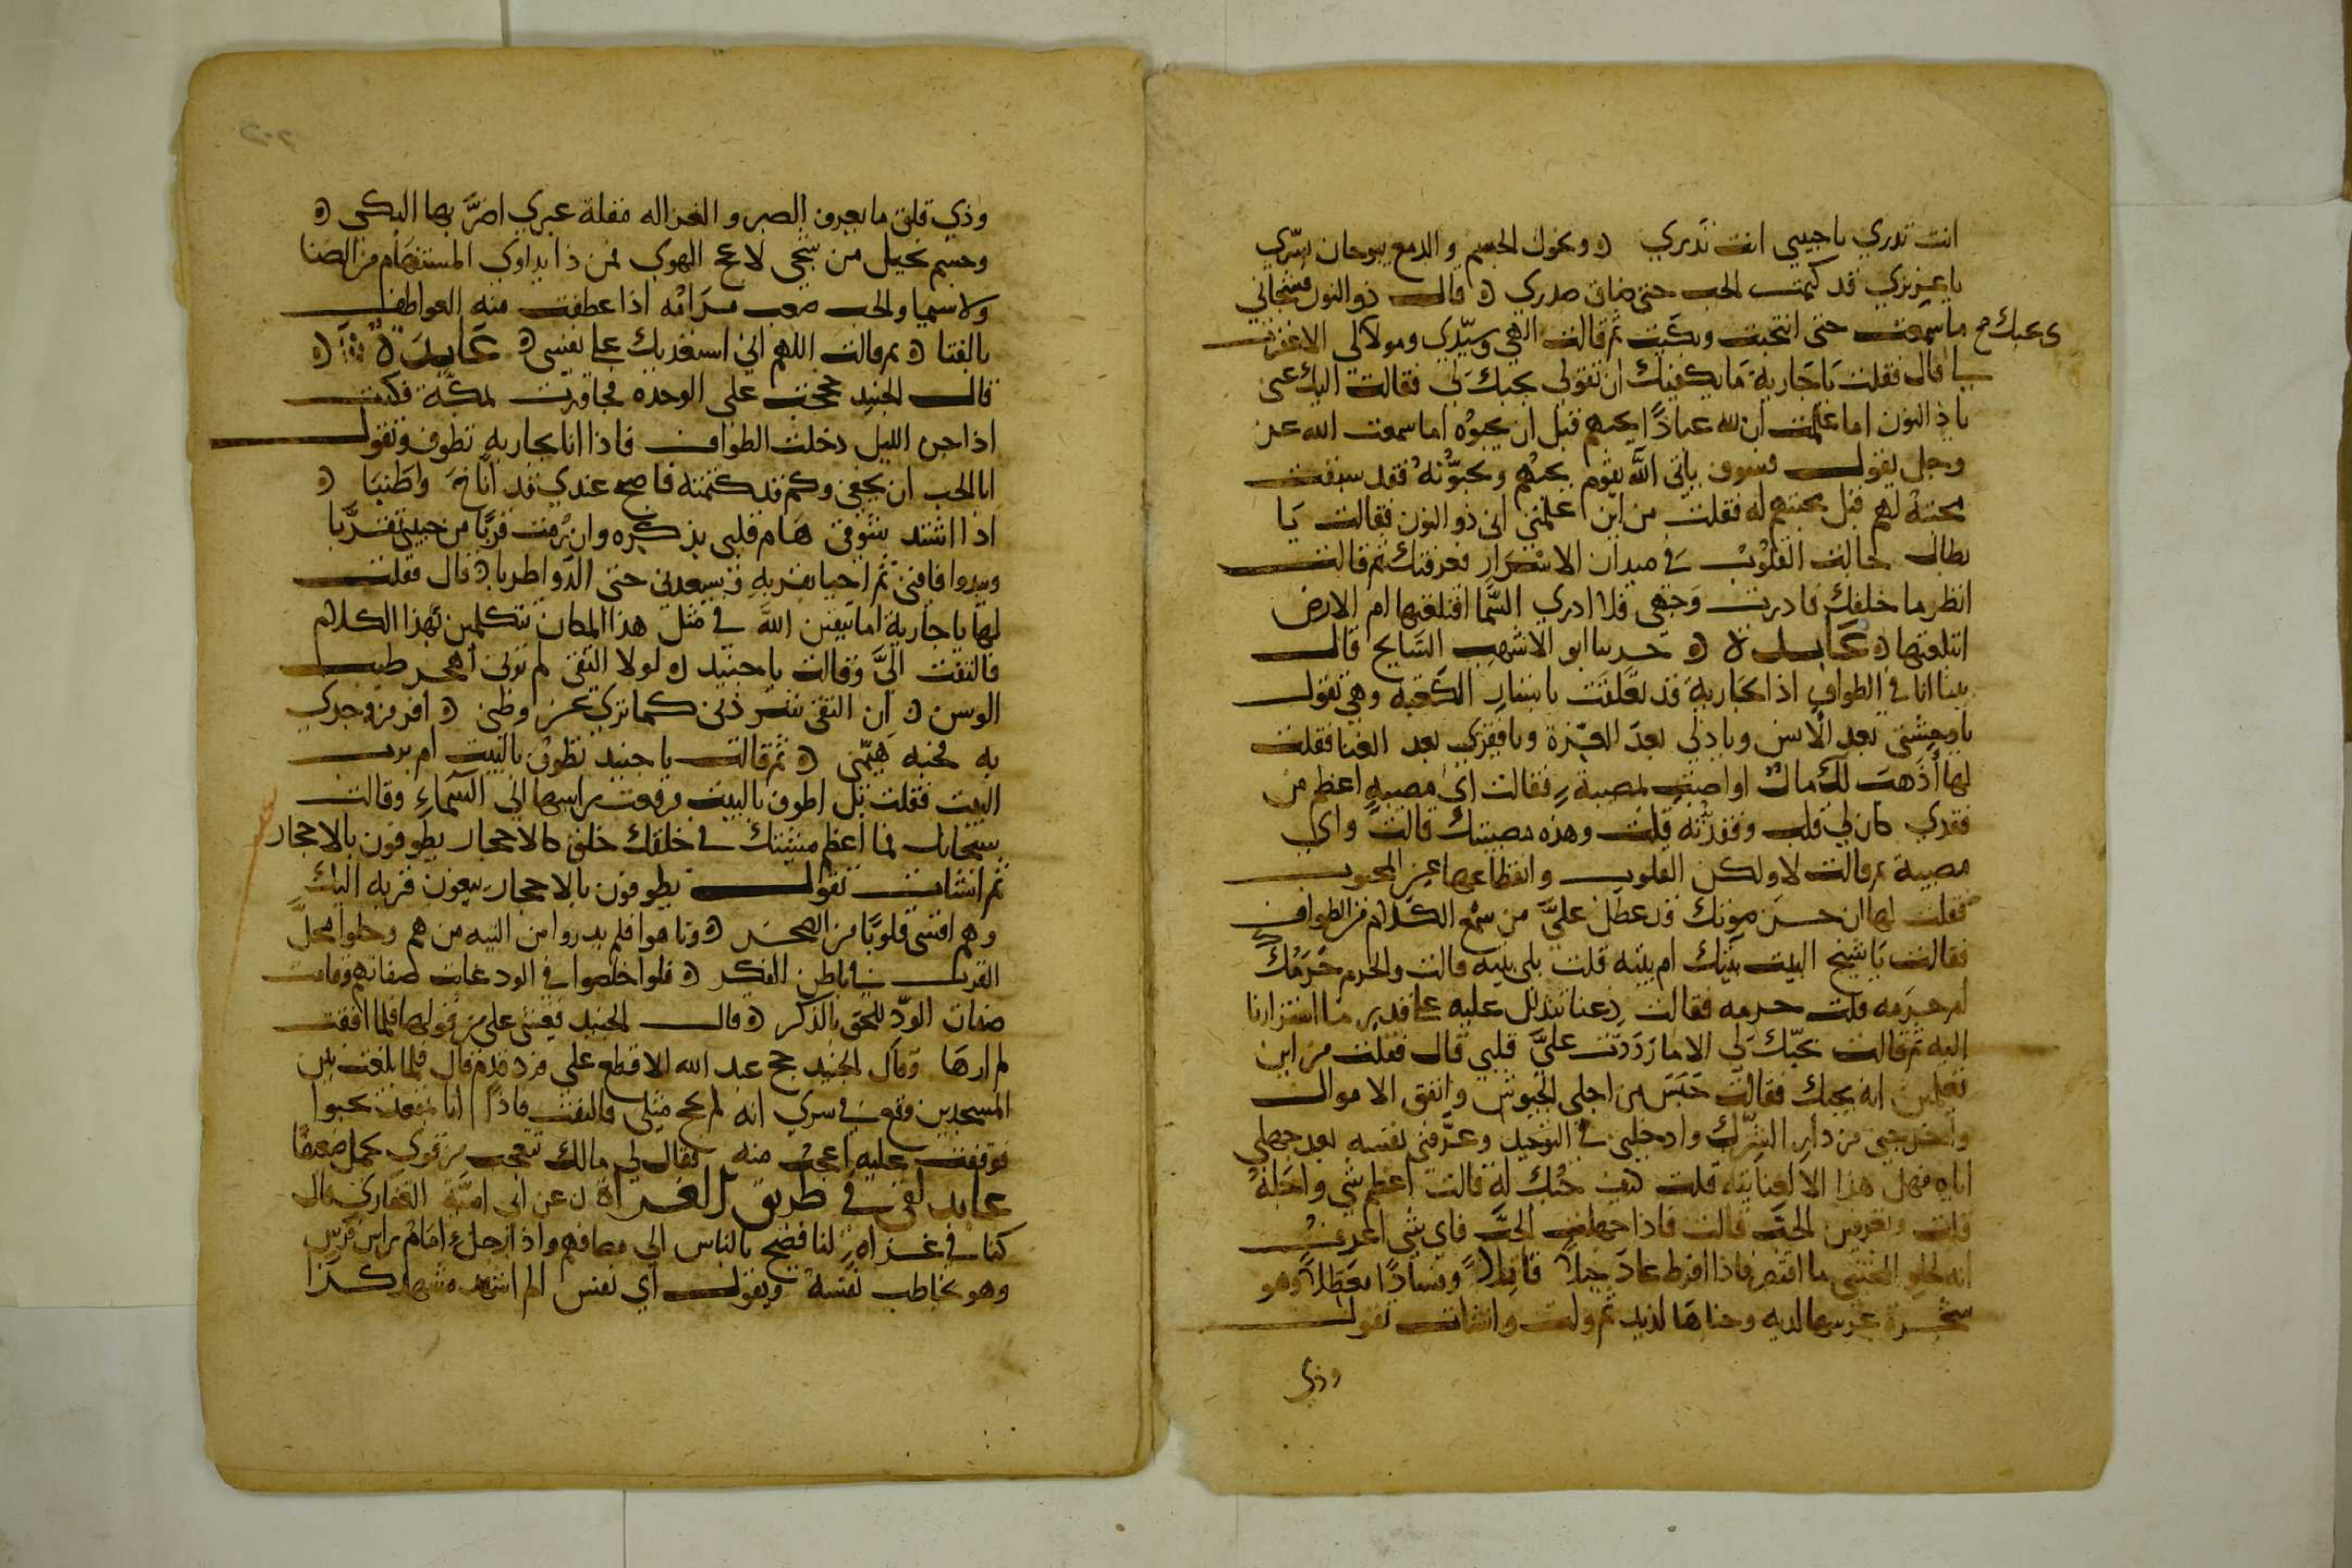 انت تدري يا حبيبي انت تدري ه ونحول الجسم والدمع يبوحان بسري
يا عزيزي قد كتمت الحب حتى ضاق صدري ه قال ذو النون فشجاني
ما سمعت حتى انتحبت وبكيت ثم قالت الهي وسيدي ومولاي الا غفرت
بحبك
لي قال فقلت يا جارية ما يكفيك ان تقولي بحبك لي فقالت اليك عني
يا ذا النون اما علمت ان لله عبادا يحبهم قبل ان يحبوه اما سمعت الله عز
وجل يقول فسوف يأتي الله بقوم يحبهم ويحبونه فقد سبقت
محبته لهم قبل محبتهم له فقلت من اين علمتي اني ذو النون فقالت يا
بطال جالت القلوب في ميدان الاسرار فعرفتك ثم قالت
انظر ما خلفك فادرت وجهي فلا ادري السما اقتلعتها ام الارض
ابتلعتها ه عابدة ه حدثنا ابو الاشهب السايح قال
بينا انا في الطواف اذا بجارية قد تعلقت باستار الكعبة وهي تقول
يا وحشتي بعد الانس ويا ذلي بعد العزة ويا فقري بعد الغنا فقلت
لها اذهب لك مال او اصبت بمصيبة فقالت اي مصيبة اعظم من
فقدي كان لي قلب وفقدته قلت وهذه مصيبتك قالت واي
مصيبة ثم قالت لا ولكن القلوب وانقطاعها عن المحبوب
فقلت لها ان حسن صوتك قد عطل علي من سمع الكلام من الطواف
فقالت يا شيخ البيت بيتك ام بيته قلت بلى بيته قالت والحرم حرمك
ام حرمه قلت حرمه فقالت دعنا نتدلل عليه على قدر ما استزارنا
اليه ثم قالت بحبك لي الا ما رددت علي قلبي قال فقلت من اين
تعلمين انه يحبك فقالت جيش من اجلي الجيوش وانفق الاموال
واخرجني من دار الشرك وادخلني في التوحيد وعرفني نفسه بعد جهلي
اياه فهل هذا الا لعناية قلت كيف حبك له قالت اعظم شي واجله
قلت وتعرفين الحب قالت فاذا جهلت الحب فاي شي اعرف
انه لحلو المجتنى ما اقتصر فاذا افرط عاد خبلا قاتلا وفسادا معطلا وهو
شجرة غرسها لديه وجناها لذيذ ثم ولت وانشات تقول
وذي
وذي قلق ما يعرف الصبر والعزاله مقلة عبري اضر بها البكى ه
وجسم نحيل من شجى لاعج الهوى فمن ذا يداوي المستهام من الضنا
ولا سيما والحب صعب مرامه اذا عطفت منه العواطف
بالفنا ه ثم قالت اللهم اني استعديك على نفسي ه عابدة ه
قال الجنيد حججت على الوحدة فجاورت بمكة فكنت
اذا جن الليل دخلت الطواف فاذا انا بجارية تطوف وتقول
ابا الحب ان يخفى وكم قد كتمته فاصبح عندي قد اناخ وطنبا ه
اذا اشتد شوقي هام قلبي بذكره وان رمت قربا من حبيبي تقربا
ويبدوا فافنى ثم احيا بقربه ويسعدني حتى الذ واطربا ه قال فقلت
لها يا جارية اما تتقين الله في مثل هذا المكان تتكلمين بهذا الكلام
فالتفت الي وقالت يا جنيد ه لولا التقى لم ترني اهجر طيب
الوسن ه ان التقى شردني كما ترى عن وطني ه افر من وجدي
به فحبه هيمني ه ثم قالت يا جنيد تطوف بالبيت ام برب
البيت فقلت بل اطوف بالبيت فرفعت راسها الى السماء وقالت
سبحانك فما اعظم مشيتك في خلقك خلق كالاحجار يطوفون بالاحجار
ثم انشات تقول يطوفون بالاحجار يبغون قربة اليك
وهم اقسى قلوبا من الصخر ه وتاهوا فلم يدروا من التيه من هم وحلوا محل
القرب في باطن الفكر ه فلوا خلصوا في الود غابت صفاتهم وقامت
صفات الود للحق بالذكر ه قال الجنيد فغشي علي من قولها فلما افقت
لم ارها وقال الجنيد حج عبد الله الاقطع على فرد قدم قال فلما بلغت بين
المسجدين وقع في سري انه لم يحج مثلي فالتفت فاذا انا بمقعد يحبوا
فوقفت عليه اعجب منه فقال لي مالك تتعجب من قوي يحمل ضعيفا
عابد لقي في طريق الغزاة ه عن ابي امية الغفاري قال
كنا في غزاة لنا فصيح بالناس الى مصافهم واذا رجل امام راس فرس
وهو يخاطب نفسه ويقول اي نفس الم اشهد مشهد كذا